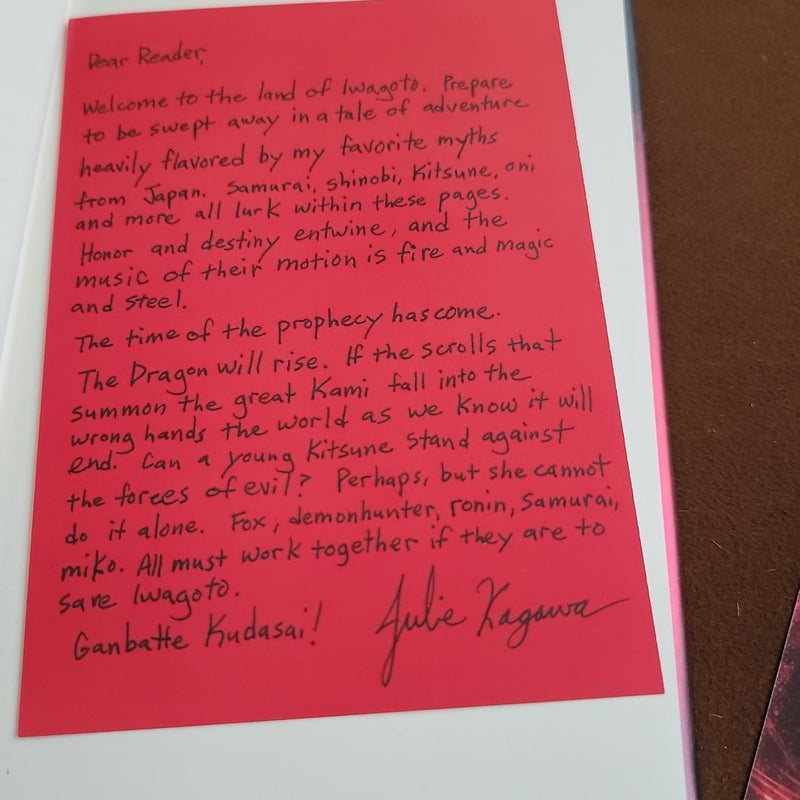 Dear Reader,
Welcome to the land of Iwagoto. Prepare
to be swept away in a tale of adventure
heavily flavored by my favorite myths
from Japan. Samurai, shinobi, Kitsune, oni
and more all lurk within these pages.
Honor and destiny entwine, and the
music of their motion is fire and magic
and steel.
The time of the prophecy has come.
The Dragon will rise. If the scrolls that
summon the great Kami fall into the
wrong hands the world as we know it will
end. Can a young Kitsune stand against
the forces of evil? Perhaps, but she cannot
do it alone. Fox, demonhunter, ronin, Samurai,
miko. All must work together if they are to
save Iwagoto.
Ganbatte Kudasai! Julie Kagawa